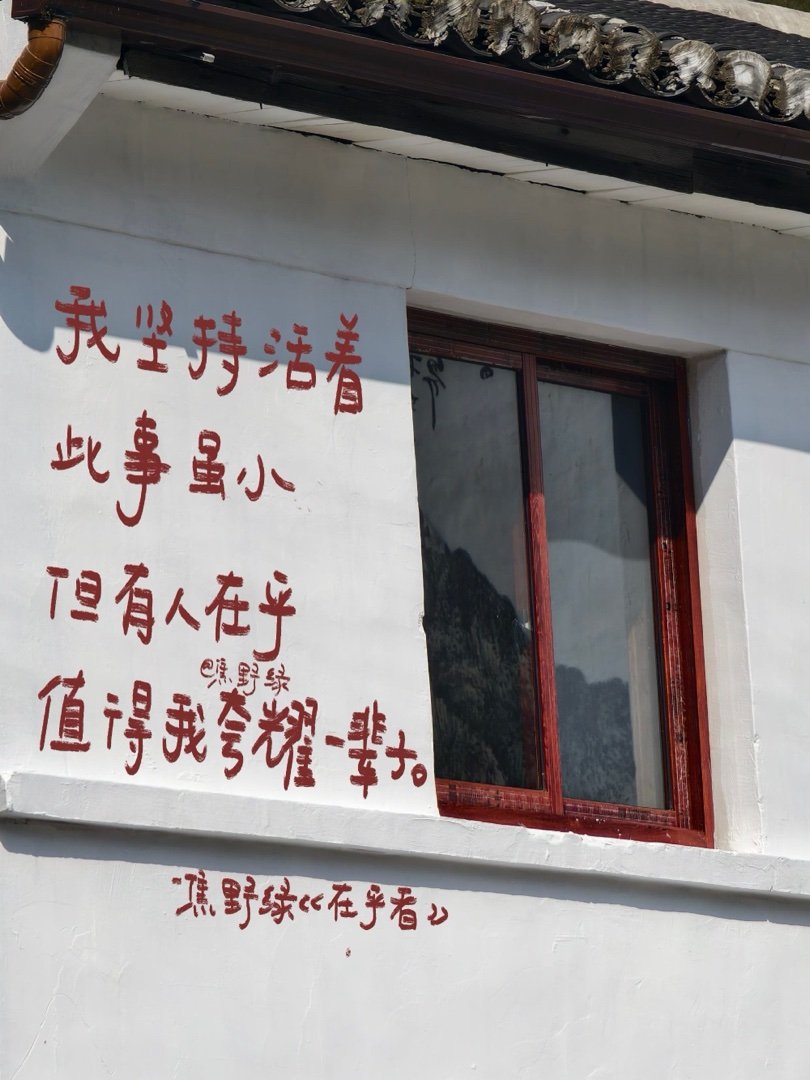 我坚持活着
此事虽小
但有人在乎
@樵野绿
值得我夸耀一辈子。
-樵野绿《在乎看》